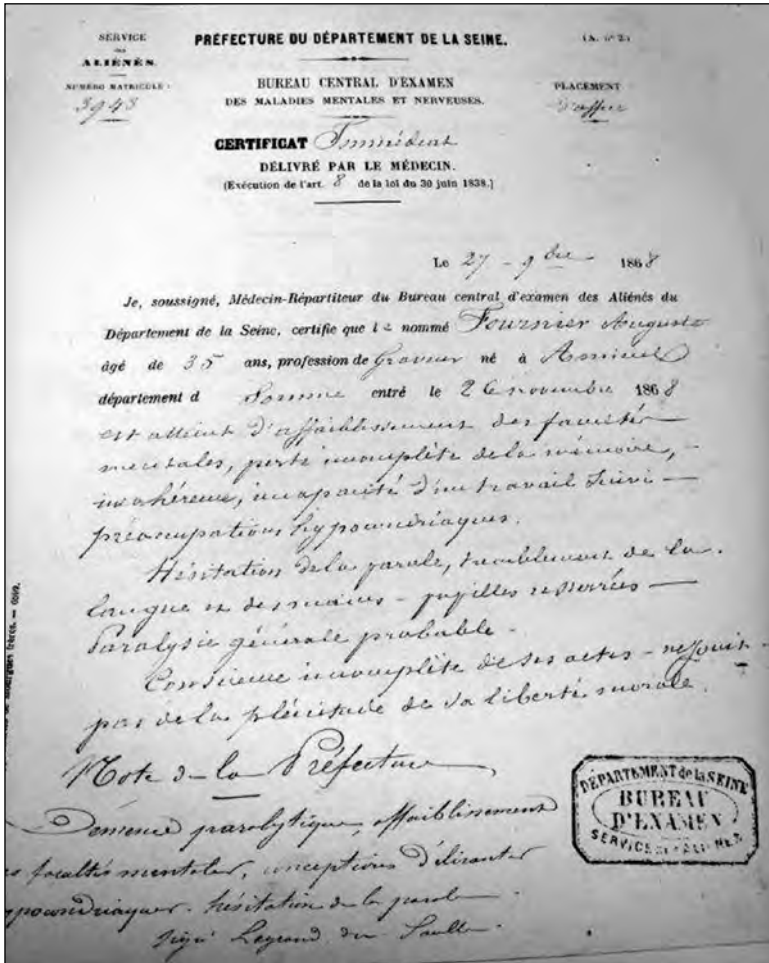 SERVICE
des
ALIÉNÉS.
NUMÉRO MATRICULE :
3943
PRÉFECTURE DU DÉPARTEMENT DE LA SEINE.
BUREAU CENTRAL D'EXAMEN
DES MALADIES MENTALES ET NERVEUSES.
CERTIFICAT Immédiat
DÉLIVRÉ PAR LE MÉDECIN.
(Exécution de l'art. 8 de la loi du 30 juin 1838.)
(A. n° 2)
PLACEMENT
d'office
Le 27 - 9bre 1868
Je, soussigné, Médecin-Répartiteur du Bureau central d'examen des Aliénés du
Département de la Seine, certifie que le nommé Fournier Auguste
âgé de 35 ans, profession de Graveur né à Amiens
département d Somme entré le 26 novembre 1868
est atteint d'affaiblissement des facultés
mentales, perte incomplète de la mémoire,
incohérence, incapacité d'un travail suivi —
préoccupations hypocondriaques.
Hésitation de la parole, tremblement de la
langue et des mains - pupilles resserrées —
Paralysie générale probable -
Conscience incomplète de ses actes - ne jouit
pas de la plénitude de sa liberté morale.
Note de la Préfecture
Démence paralytique, affaiblissement
facultés mentales, conceptions délirantes
ypocondriaques. hésitation de la parole
signé Legrand du Saulle
DÉPARTEMENT de la SEINE
BUREAU
D'EXAMEN
SERVICE des ALIÉNÉS
frères. — 6699.